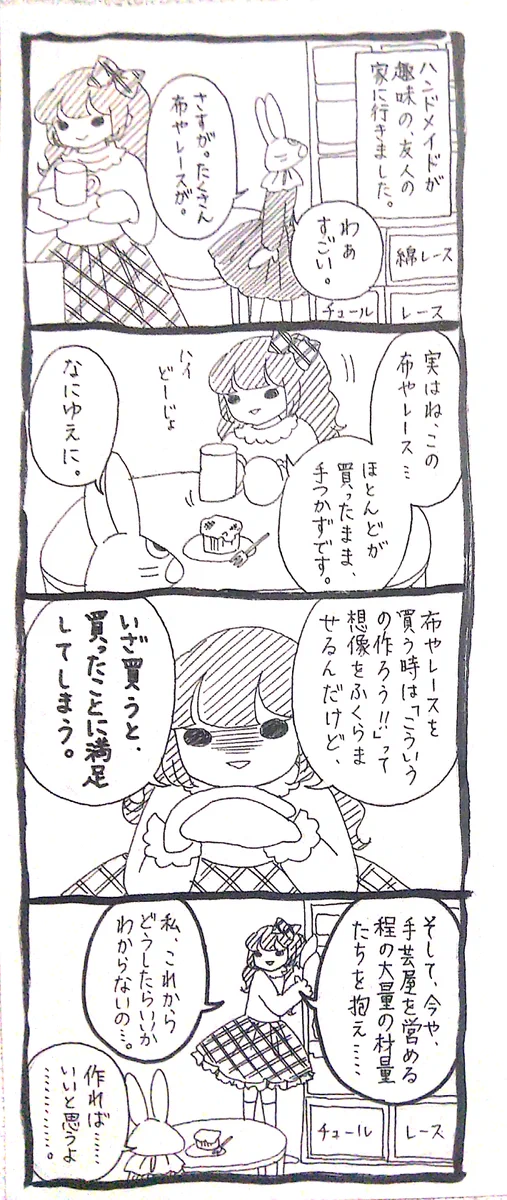 ハンドメイドが
趣味の、友人の
家に行きました。
わぁ
すごい。
さすが。たくさん
布やレースが。
綿レース
チュール
レース
実はね、この
布やレース…
ほとんどが
買ったまま、
手つかずです。
ハイ
どーじょ
なにゆえに。
布やレースを
買う時は「こういう
の作ろう!!」って
想像をふくらま
せるんだけど、
いざ買うと、
買ったことに満足
してしまう。
そして、今や、
手芸屋を営める
程の大量の材量
たちを抱え……
私、これから
どうしたらいいか
わからないの…。
チュール
レース
作れば……
いいと思うよ
…………。